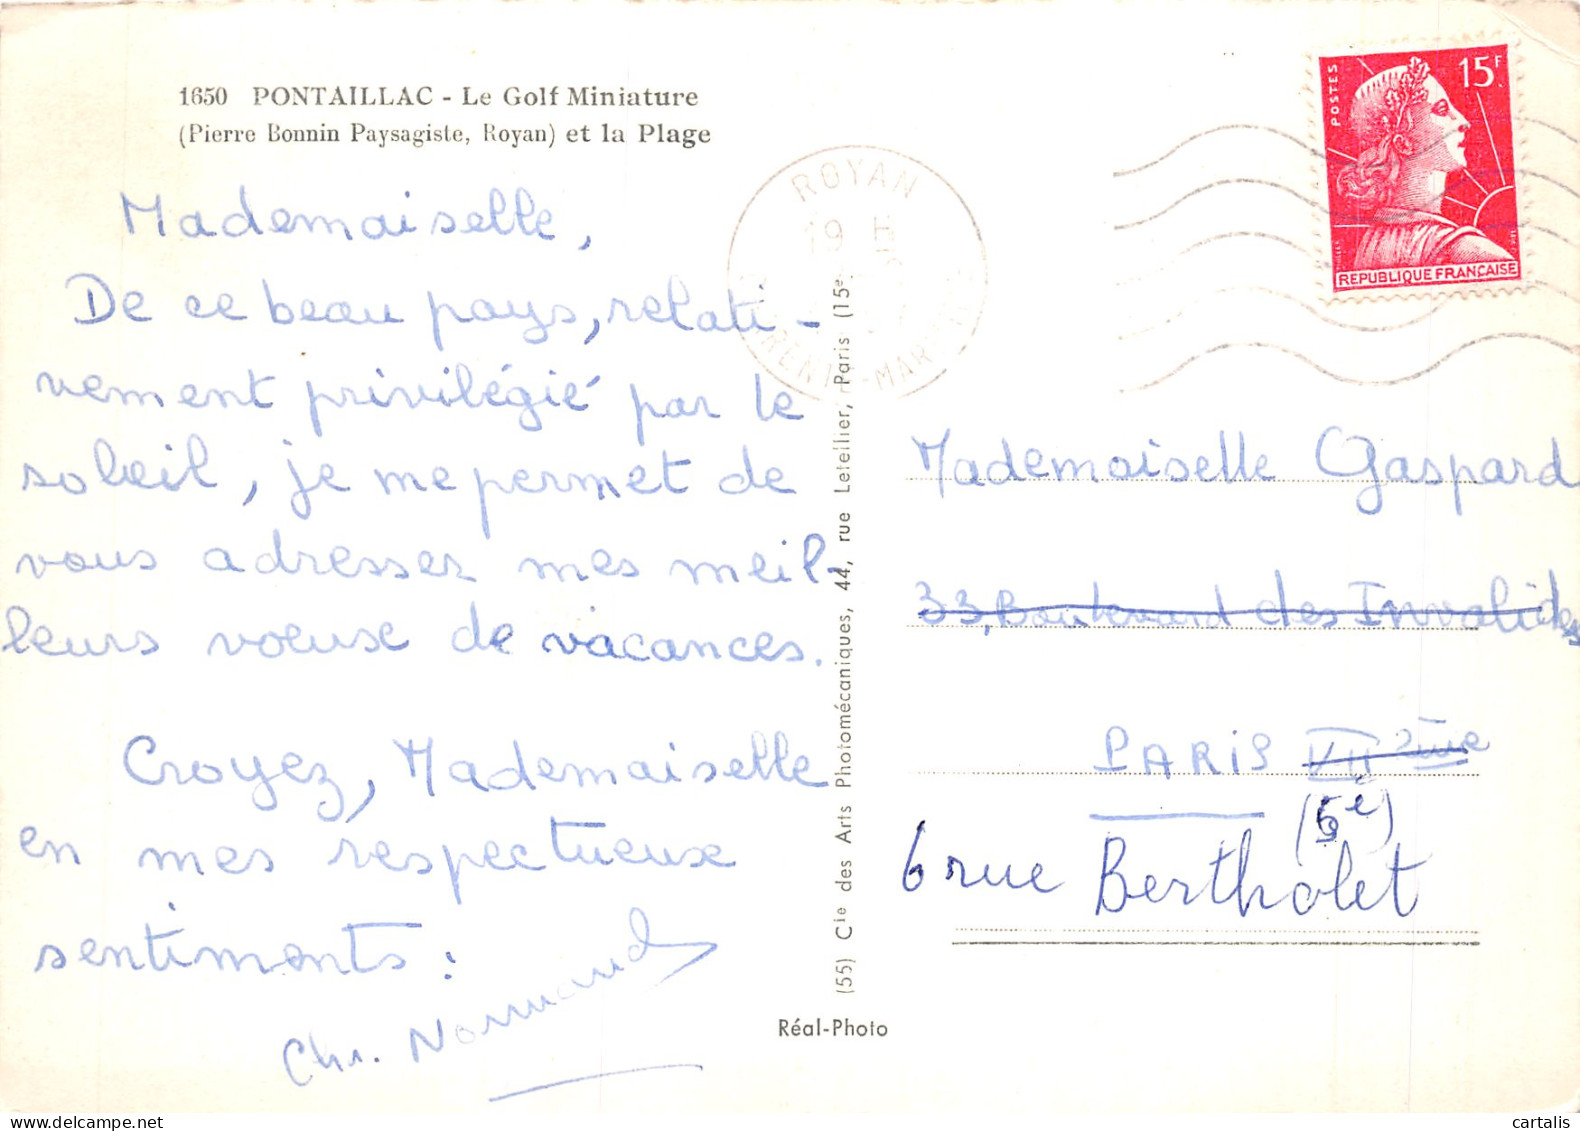 1650 PONTAILLAC - Le Golf Miniature
(Pierre Bonnin Paysagiste, Royan) et la Plage
Mademoiselle,
De ce beau pays, relati-
vement privilégié par le
soleil, je me permet de
vous adresser mes meil-
leurs voeux de vacances.
Croyez, Mademoiselle
en mes respectueux
sentiments :
Chr. Normand
(55) Cie des Arts Photomécaniques, 44, rue Letellier, Paris (15e)
Réal-Photo
ROYAN
19 H
CHARENTE-MARITIME
POSTES
15F
REPUBLIQUE FRANÇAISE
Mademoiselle Gaspard
33, Boulevard des Invalides
PARIS VIIème
(5e)
6 rue Bertholet
cartalis